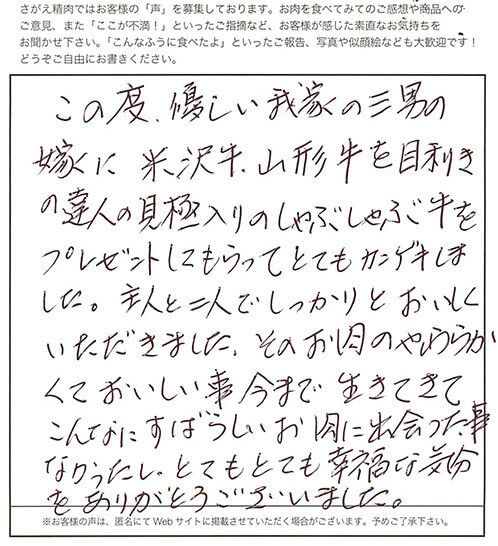 さがえ精肉ではお客様の「声」を募集しております。お肉を食べてみてのご感想や商品への
ご意見、また「ここが不満！」といったご指摘など、お客様が感じた素直なお気持ちを
お聞かせ下さい。「こんなふうに食べたよ」といったご報告、写真や似顔絵なども大歓迎です！
どうぞご自由にお書きください。
この度、優しい我家の三男の
嫁くに 米沢牛、山形牛を目利き
の達人の見極入りのしゃぶしゃぶ牛を
プレゼントしてもらってとてもカンゲキしま
した。主人と二人でしっかりとおいしく
いただきました。そのお肉のやわらか
くておいしい事今まで生きてきて
こんなにすばらしいお肉に出会った事
なかったし、とてもとても幸福な気分
をありがとうございました。
※お客様の声は、匿名にてWebサイトに掲載させていただく場合がございます。予めご了承下さい。